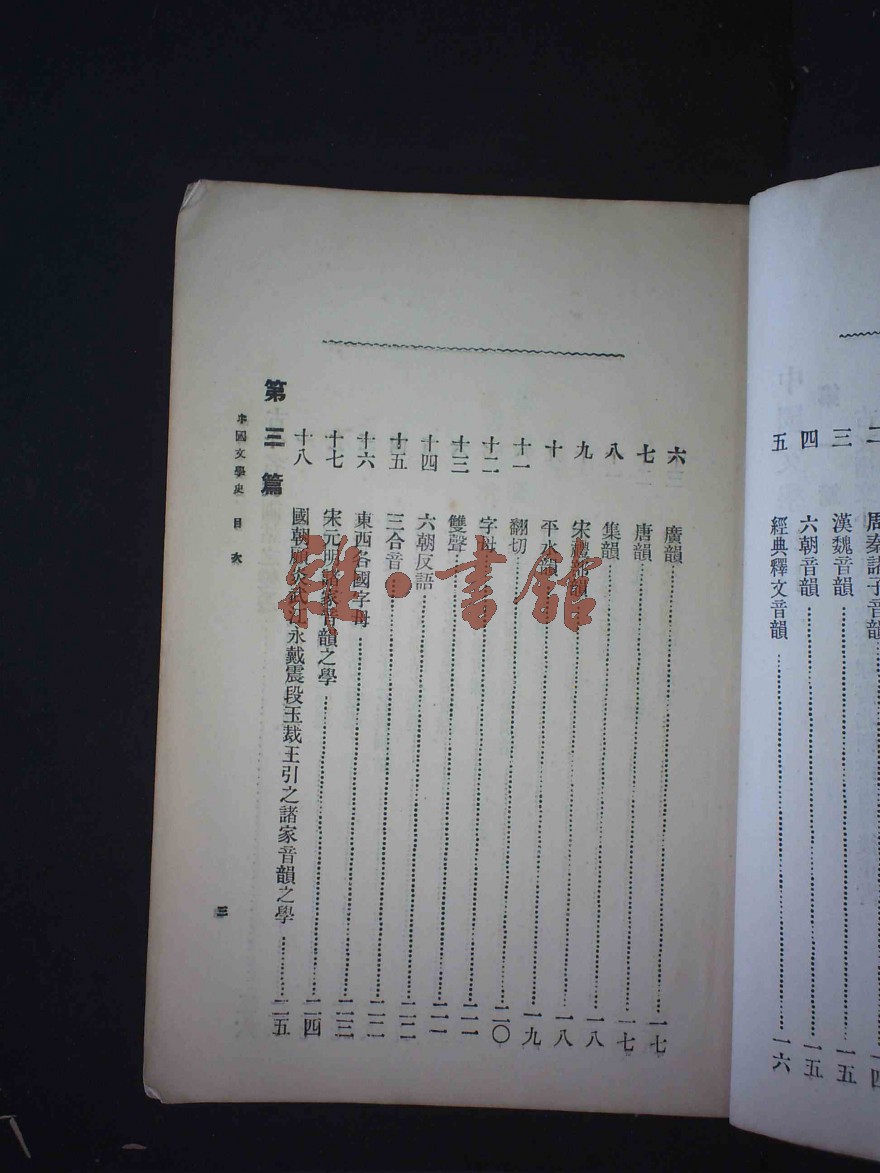 二 周秦諸子音韻 一四
三 漢魏音韻 一五
四 六朝音韻 一五
五 經典釋文音韻 一六
六 廣韻 一七
七 唐韻 一七
八 集韻 一八
九 宋禮部韻 一八
十 平水韻 一九
十一 翻切 二〇
十二 字母 二一
十三 雙聲 二一
十四 六朝反語 二二
十五 三合音 二二
十六 東西各國字母 二三
十七 宋元明諸家音韻之學 二四
十八 國朝顧炎武江永戴震段玉裁王引之諸家音韻之學 二五
第三篇
中國文學史 目次
三
雜·書館